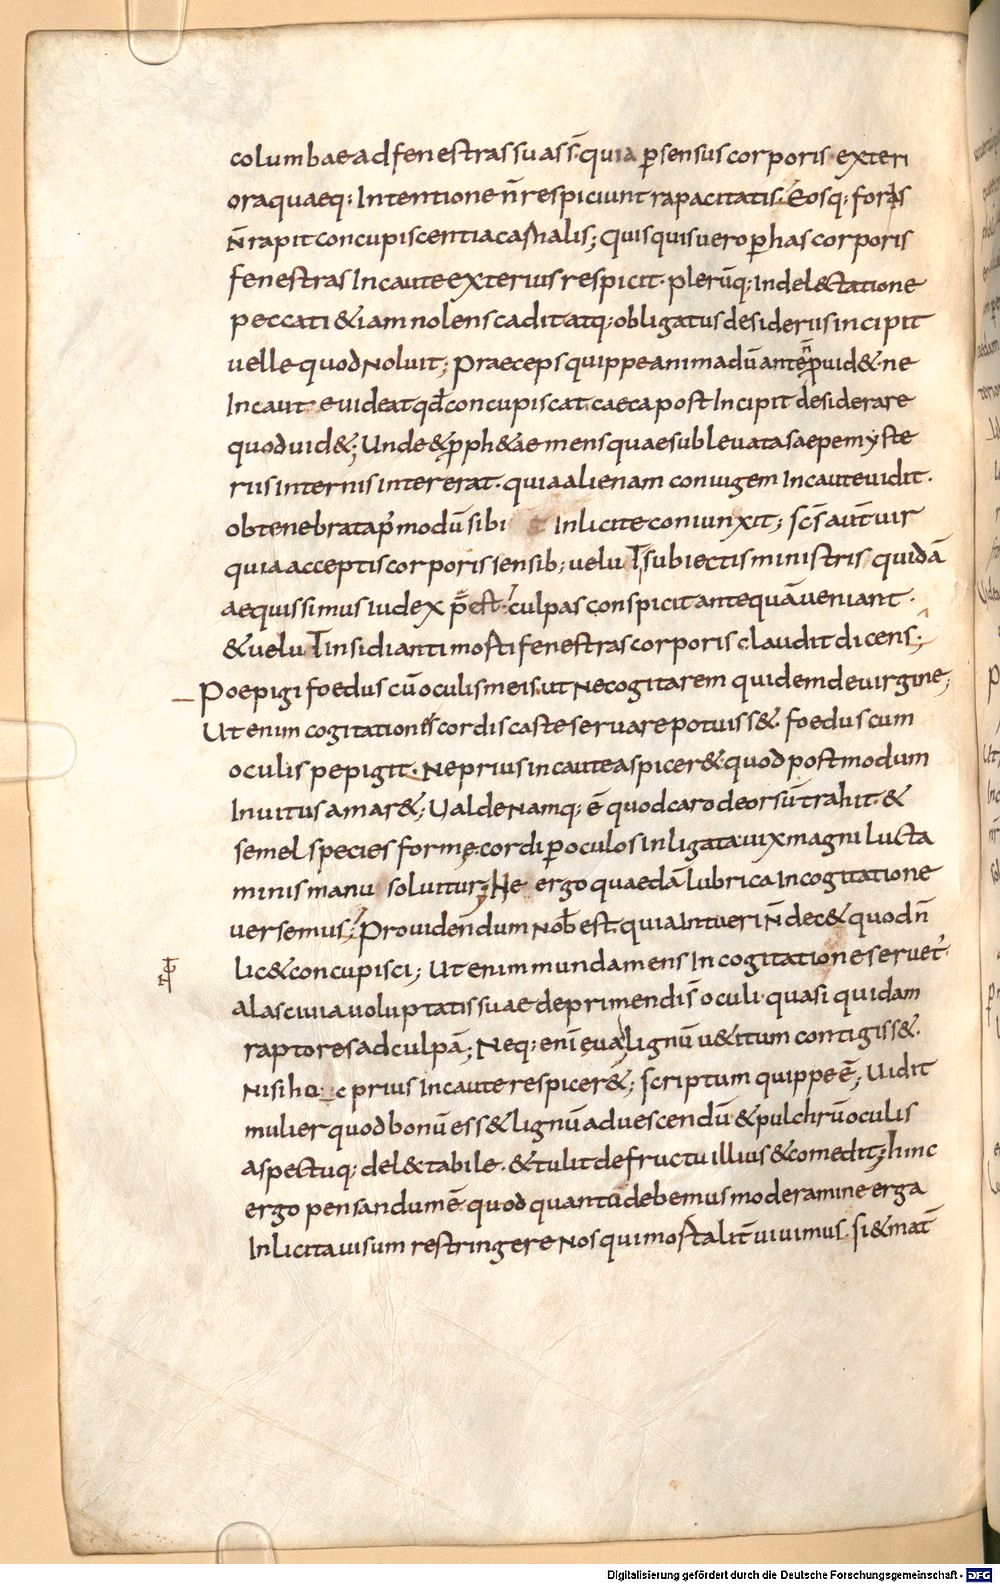 columbae ad fenestras suas s̄· quia ꝑ sensus corporis exteri
ora quaeq: Intentione n̄ respiciunt rapacitatis· Eosq: foras
N̄ rapit concupiscentia carnalis; quisquis uero ꝑ has corporis
fenestras Incaute exterius respicit· plerūq: In delectatione
peccati & iam nolens cadit atq: obligatus desideriis incipit
uelle quod Noluit; Praeceps quippe anima dū ante n̄ p̄uid& ne
Incaute uideat qđ concupiscat caeca post Incipit desiderare
quod uid&; Unde & p̱ph&ae mens quae subleuata saepe myste
riis internis intererat· quia alienam coniugem Incaute uidit·
obtenebrata p' modū sibi Inlicite coniunxit; sc̄s aut̄ uir
quia acceptis corporis sensib; uelut subiectis ministris quidā
aequissimus iudex p̄est· culpas conspicit antequā ueniant·
& uelut insidianti mosti fenestras corporis claudit dicens;
Poepigi foedus cū oculis meis· ut Ne cogitarem quidem de uirgine;
Ut enim cogitationes cordis caste seruare potuiss&· foedus cum
oculis pepigit· Ne prius incaute aspicer& quod postmodum
Inuitus amar&; Ualde Namq; ē quod caro deorsū trahit· &
semel species formę cordi ꝑ oculos inligata uix magni lucta
minis manu soluitur; Ne ergo quaedā lubrica In cogitatione
uersemus; Prouidendum Nob̄ est· quia Intueri N̄ dec& quod n̄
lic& concupisci; Ut enim munda mens In cogitatione seruet'
a lasciuia uoluptatis suae deprimendi s̄ oculi· quasi quidam
raptores ad culpā; Neq: enī eua lignū u&itum contigiss&·
Nisi hoc prius Incaute respicer&; scriptum quippe ē; Uidit
mulier quod bonū ess& lignū ad uescendū & pulchrū oculis
aspectuq; del&tabile· & tulit de fructu illius & comedit; hinc
ergo pensandum ē· quod quantū debemus moderamine erga
Inlicita uisum restringere Nos qui mostalit̄ uiuimus· si & mat̄
Digitalisierung gefördert durch die Deutsche Forschungsgemeinschaft - DFG